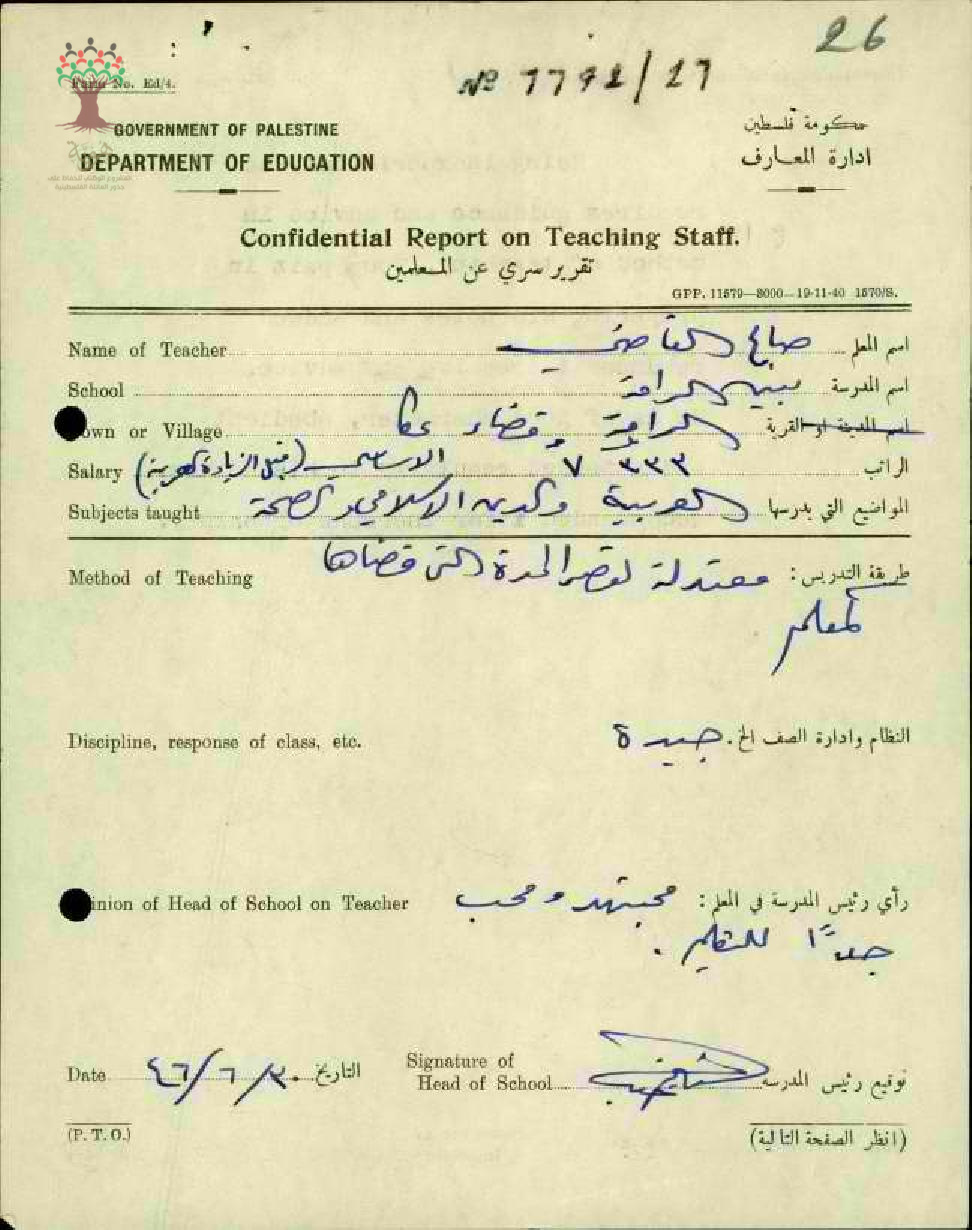 26
Nº 7792/27
Form No. Ed/4.
GOVERNMENT OF PALESTINE
حكومة فلسطين
DEPARTMENT OF EDUCATION
ادارة المعارف
Confidential Report on Teaching Staff.
تقرير سري عن المعلمين
GPP. 11579—8000—19-11-40 1570/S.
Name of Teacher صباح القاضي اسم المعلم
School بنين الرامة اسم المدرسة
own or Village الرامة قضاء عكا اسم المدينة او القرية
Salary (قبل الزيادة الاساسي ٧ ٣٣٣ الراتب
Subjects taught العربية والدين الاسلامي والصحة المواضيع التي يدرسها
Method of Teaching معتدلة لقصر المدة التي قضاها طريقة التدريس:
كمعلم
Discipline, response of class, etc. جيدة النظام وادارة الصف الخ.
inion of Head of School on Teacher مجتهد ومحب رأي رئيس المدرسة في المعلم:
جدًا للتعليم.
Date ٣٠/٦/٤٦ التاريخ Signature of Head of School توقيع رئيس المدرسه
(P. T. O.) (انظر الصفحة التالية)